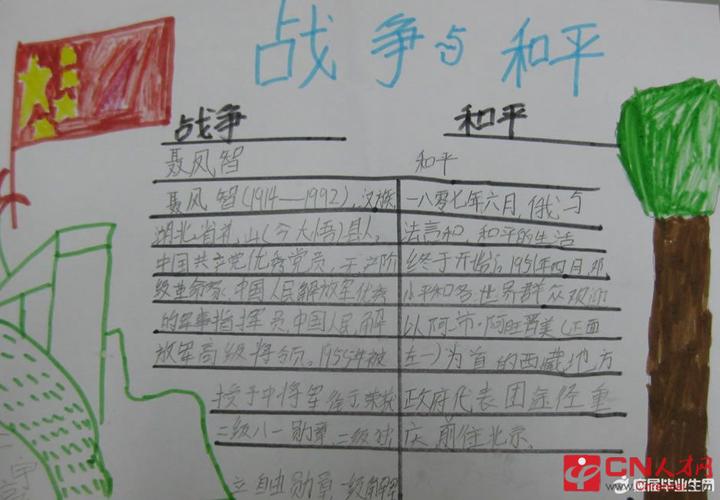 战争与和平
战争
聂凤智
聂凤智(1914——1992),汉族
湖北省礼山(今大悟)县人,
中国共产党优秀党员,无产阶
级革命家,中国人民解放军优秀
的军事指挥员,中国人民解
放军高级将领。1955年被
授于中将军衔于荣获
二级八一勋章,二级独
立自由勋章一级解放
和平
和平
一八零七年六月,俄与
法言和,和平的生活
终于开始了1951年四月,邓
小平和各世界群众欢迎
以阿沛·阿旺晋美(正面
左一)为首的西藏地方
政府代表团途径重
庆前往北京.
CN人才网
应届毕业生网